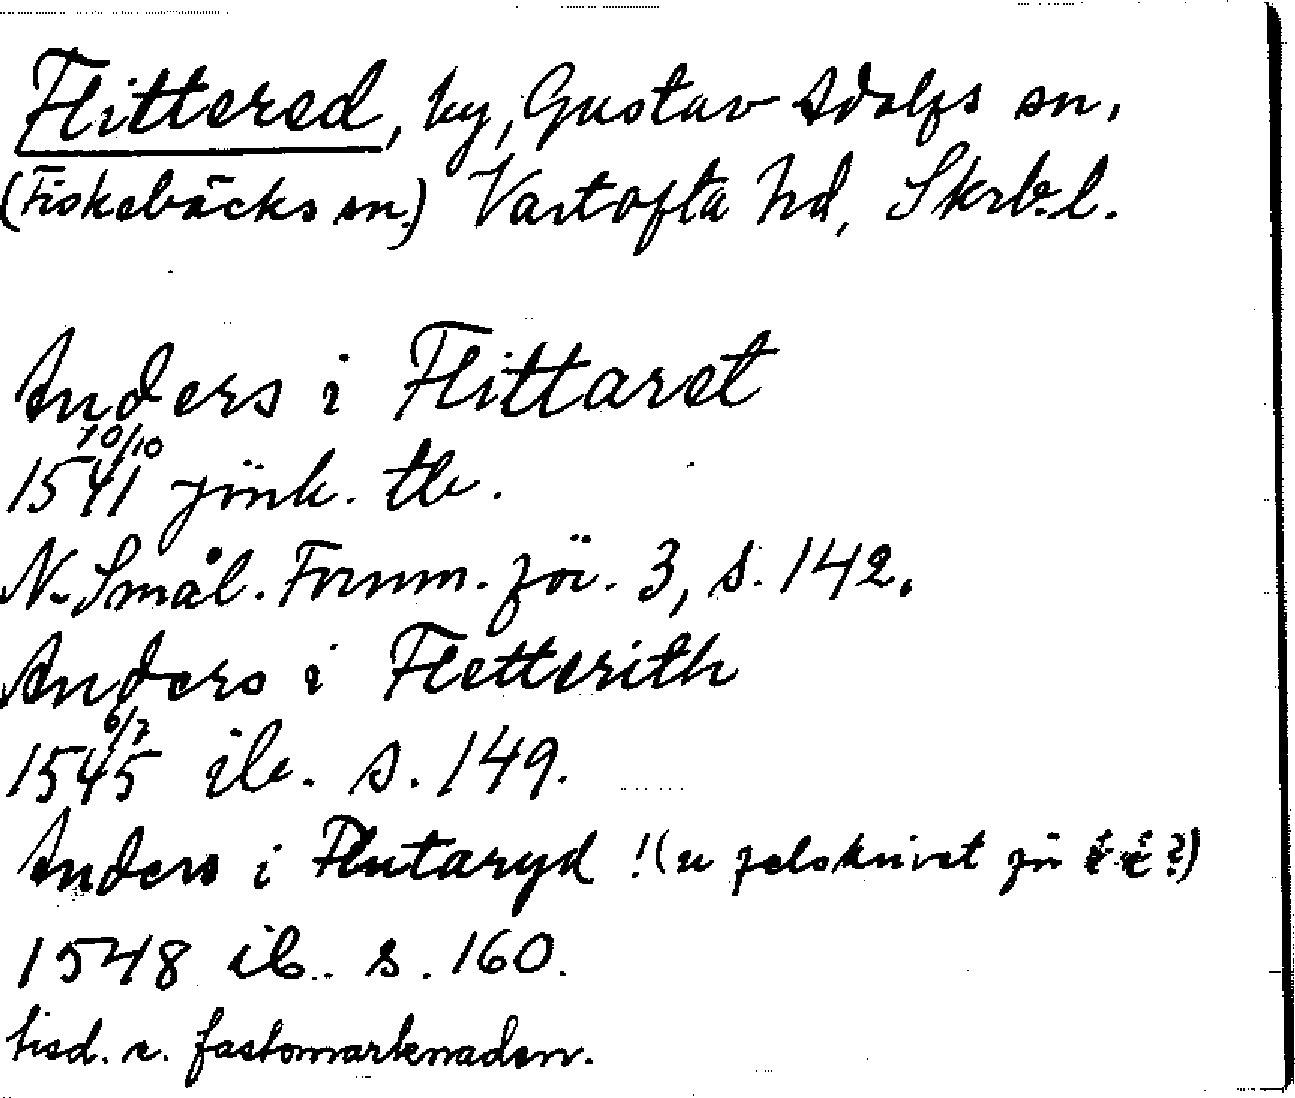 Flittered, by, Gustav Adolfs sn,
(Fiskebäcks sn.) Vartofta hd, Skrb.l.
Anders i Flittaret
10/10
1541 jönk. tb.
N. Smål. Fornm. för. 3, s. 142.
Anders i Fletterith
6/2
1545 ib. s. 149.
Anders i Flutaryd ! (u felskrivet för it?)
1548 ib. s. 160.
tisd. e. fastomarknaden.